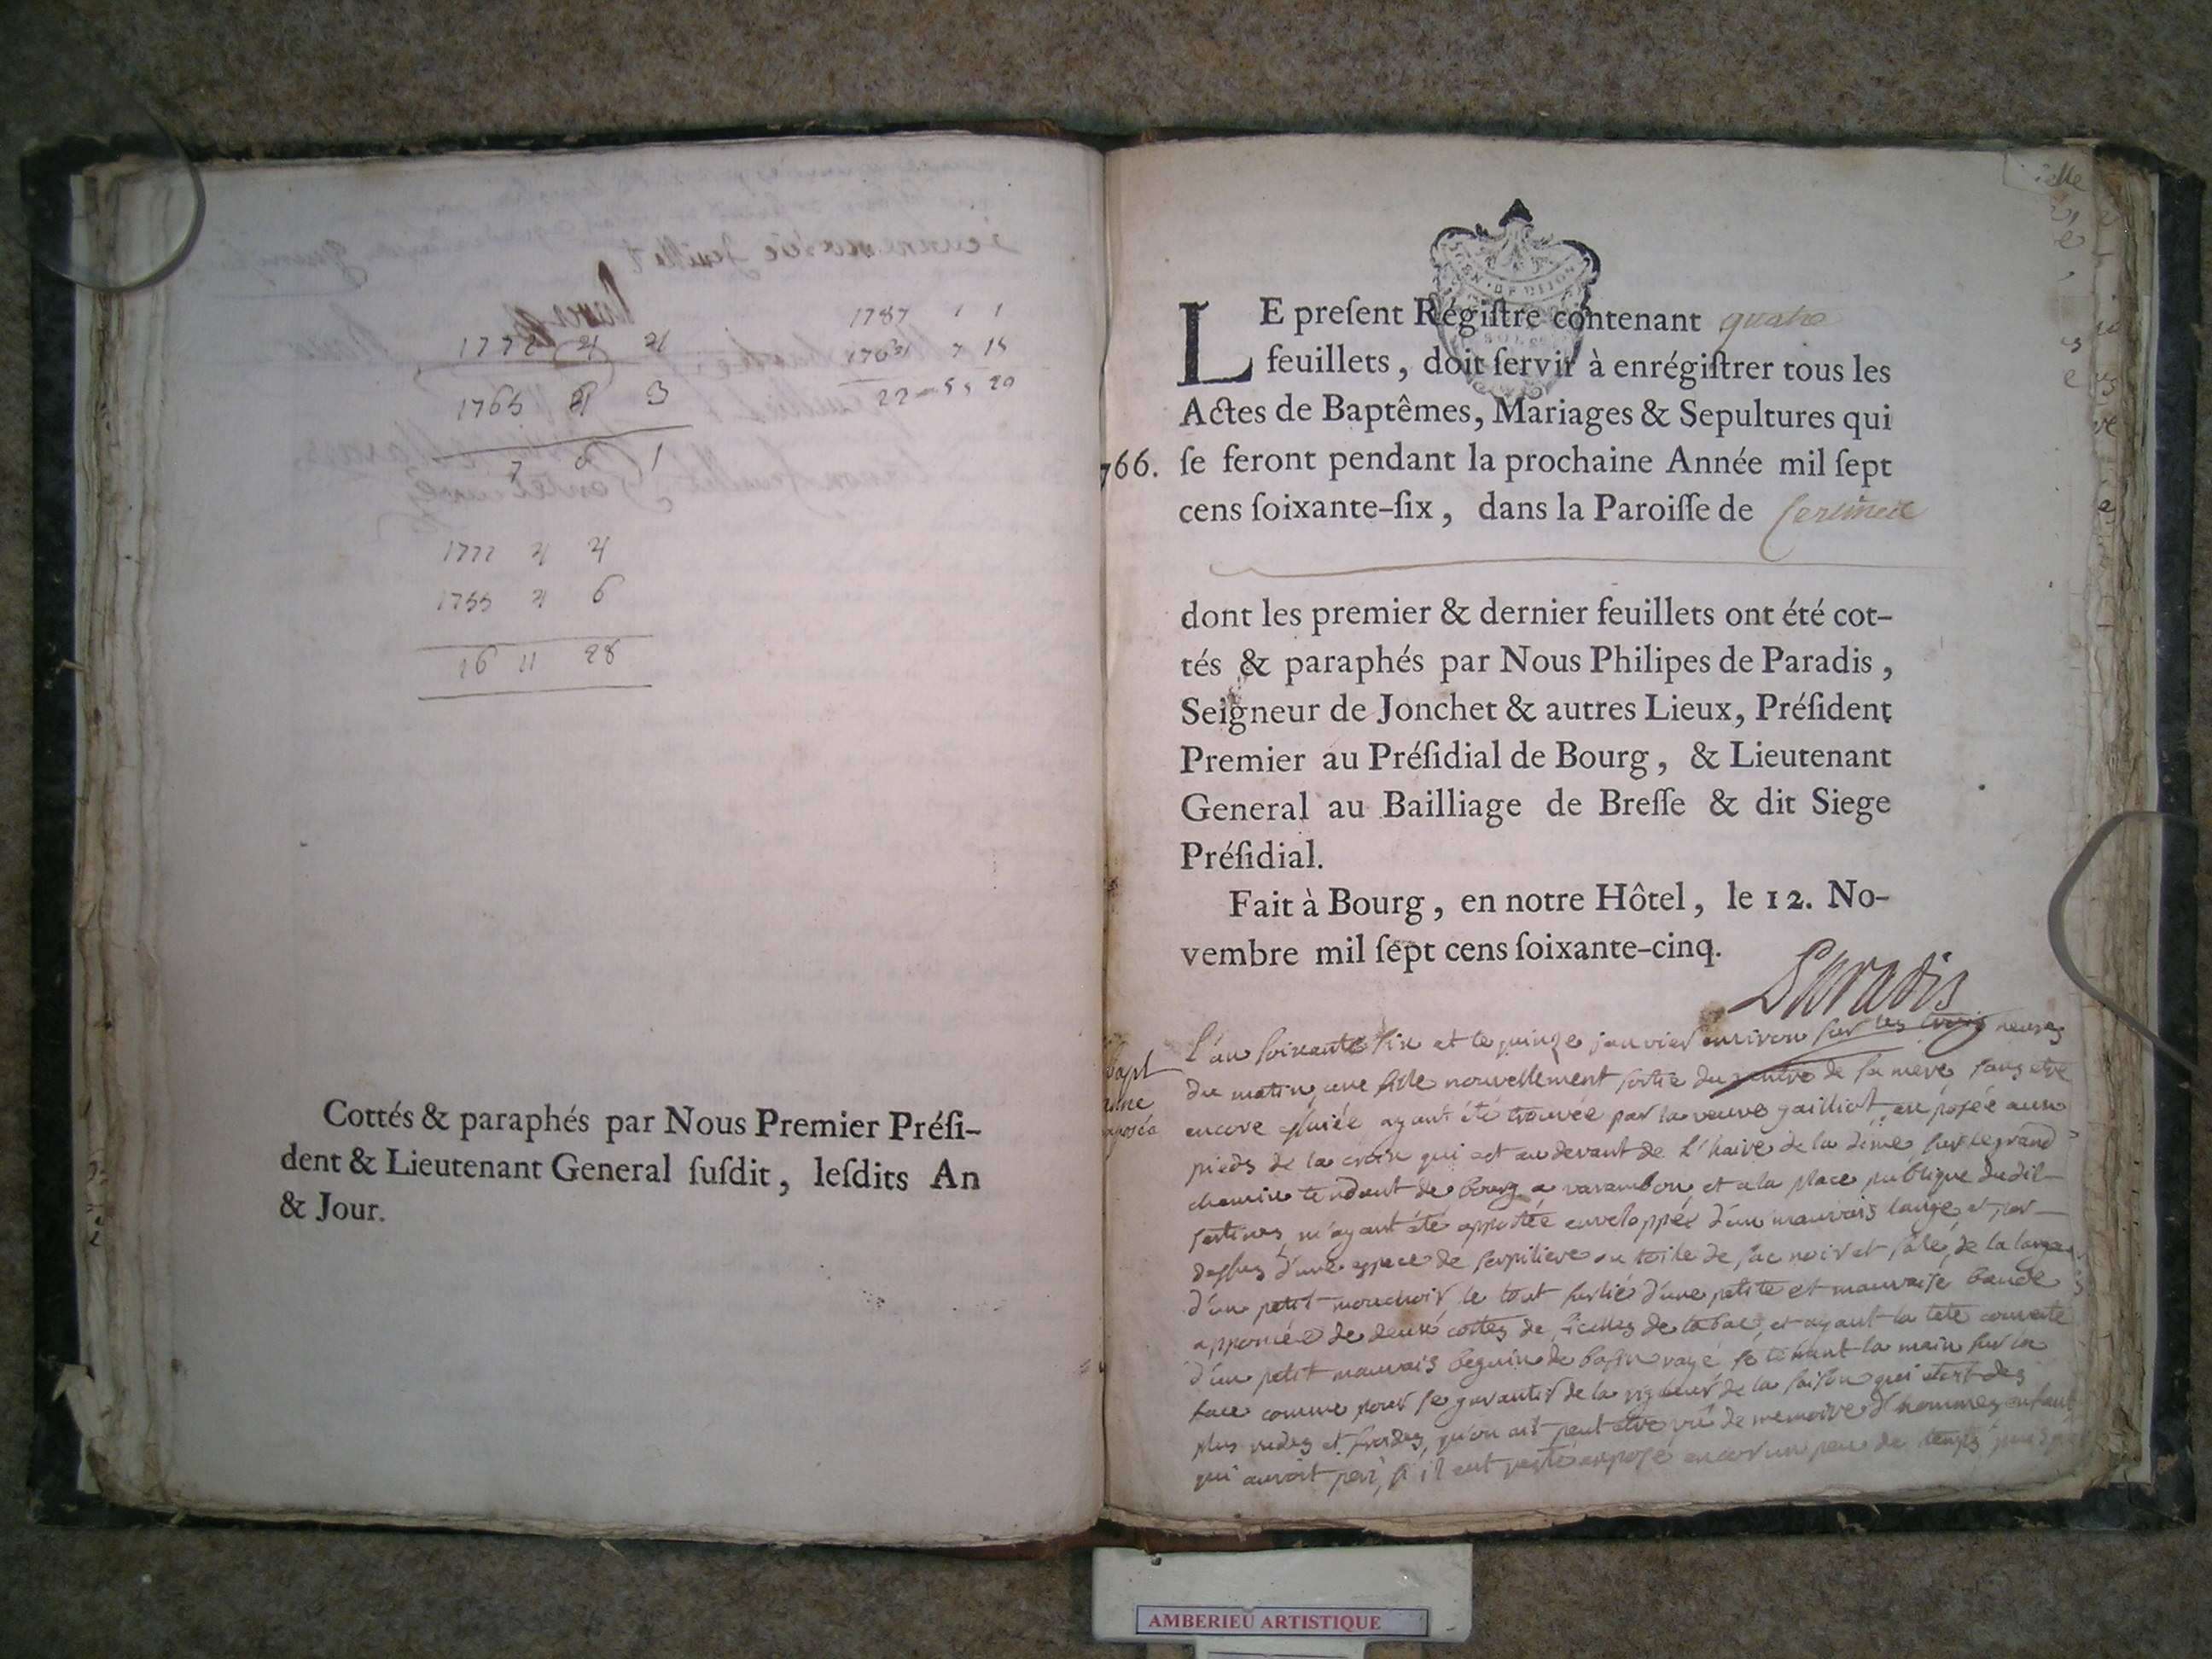 1787 1 1
22 - 5 20
1772 4 4
1765 8 3
7 8 1
1772 4 4
1755 4 6
16 11 28
Cottés & paraphés par Nous Premier Préſi-
dent & Lieutenant General ſuſdit, leſdits An
& Jour.
LE preſent Régiſtre contenant quatre
feuillets, doit ſervir à enrégiſtrer tous les
Actes de Baptêmes, Mariages & Sepultures qui
766. ſe feront pendant la prochaine Année mil ſept
cens ſoixante-ſix, dans la Paroiſſe de
dont les premier & dernier feuillets ont été cot-
tés & paraphés par Nous Philipes de Paradis,
Seigneur de Jonchet & autres Lieux, Préſident
Premier au Préſidial de Bourg, & Lieutenant
General au Bailliage de Breſſe & dit Siege
Préſidial.
Fait à Bourg, en notre Hôtel, le 12. No-
vembre mil ſept cens ſoixante-cinq.
Paradis
bapt
L'an soixante six et le quinze janvier environ sur les neuves
du matin, une fille nouvellement sortie du ventre de sa mere, sans etre
encore ayant été trouvée par la veuve gailliot, exposée aux
pieds de la croix qui est au devant de l'haire de la dime sur le grand
chemin tendant de bourg a varambon et a la place publique dudit
sertines, m'ayant été apportée enveloppée d'un mauvais lange et par
dessus d'une espece de serpiliere ou toile de sac noir et sale, de la large
d'un petit mouchoir, le tout surlié d'une petite et mauvaise bande
de deux cottes de ficelles de tabac, et ayant la tete couverte
d'un petit mauvais beguin de basin rayé se tenant la main sur la
face comme pour se garantir de la rigueur de la saison qui etoit des
plus rudes et froides, qu'on ait peut etre vu de memoire d'hommes, enfant
qui auroit peri, s'il eut resté exposé encor un peu de temps
AMBERIEU ARTISTIQUE